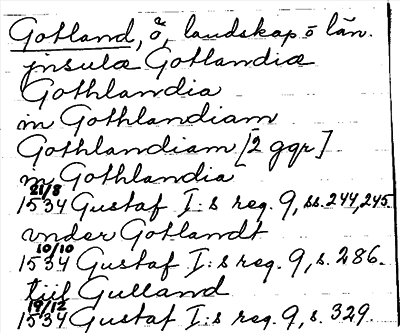 Gotland, ö, landskap o län.
jnsulæ Gotlandiæ
Gothlandia
in Gothlandiam
Gothlandiam [2 ggr]
in Gothlandia
21/8
1534 Gustaf I:s reg. 9, ss. 244, 245
vnder Gotlandt
10/10
1534 Gustaf I:s reg. 9, s. 286.
tiil Gulland
19/12
1534 Gustaf I:s reg. 9, s. 329.